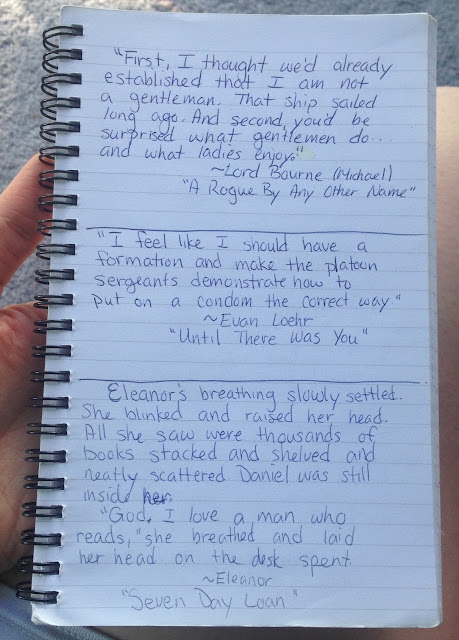 "First, I thought we'd already
established that I am not
a gentleman. That ship sailed
long ago. And second, you'd be
surprised what gentlemen do...
and what ladies enjoy."
~Lord Bourne (Michael)
"A Rogue By Any Other Name"
"I feel like I should have a
formation and make the platoon
sergeants demonstrate how to
put on a condom the correct way."
~Evan Loehr
"Until There Was You"
Eleanor's breathing slowly settled.
She blinked and raised her head.
All she saw were thousands of
books stacked and shelved and
neatly scattered. Daniel was still
inside her.
"God, I love a man who
reads," she breathed and laid
her head on the desk spent.
~Eleanor
"Seven Day Loan"